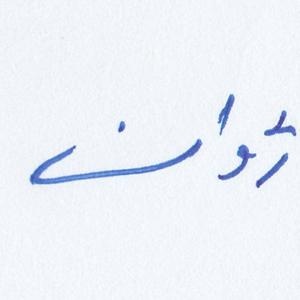 ژوانے